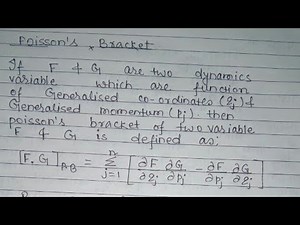 Poisson's Bracket
If F & G are two dynamics
variable which are function
of Generalised co-ordinates (qj) &
Generalised momentum (pj). then
poisson's bracket of two variable
F & G is defined as:
[F, G]AB = Σ(j=1 to n) [∂F/∂qj ∂G/∂pj - ∂F/∂pj ∂G/∂qj]